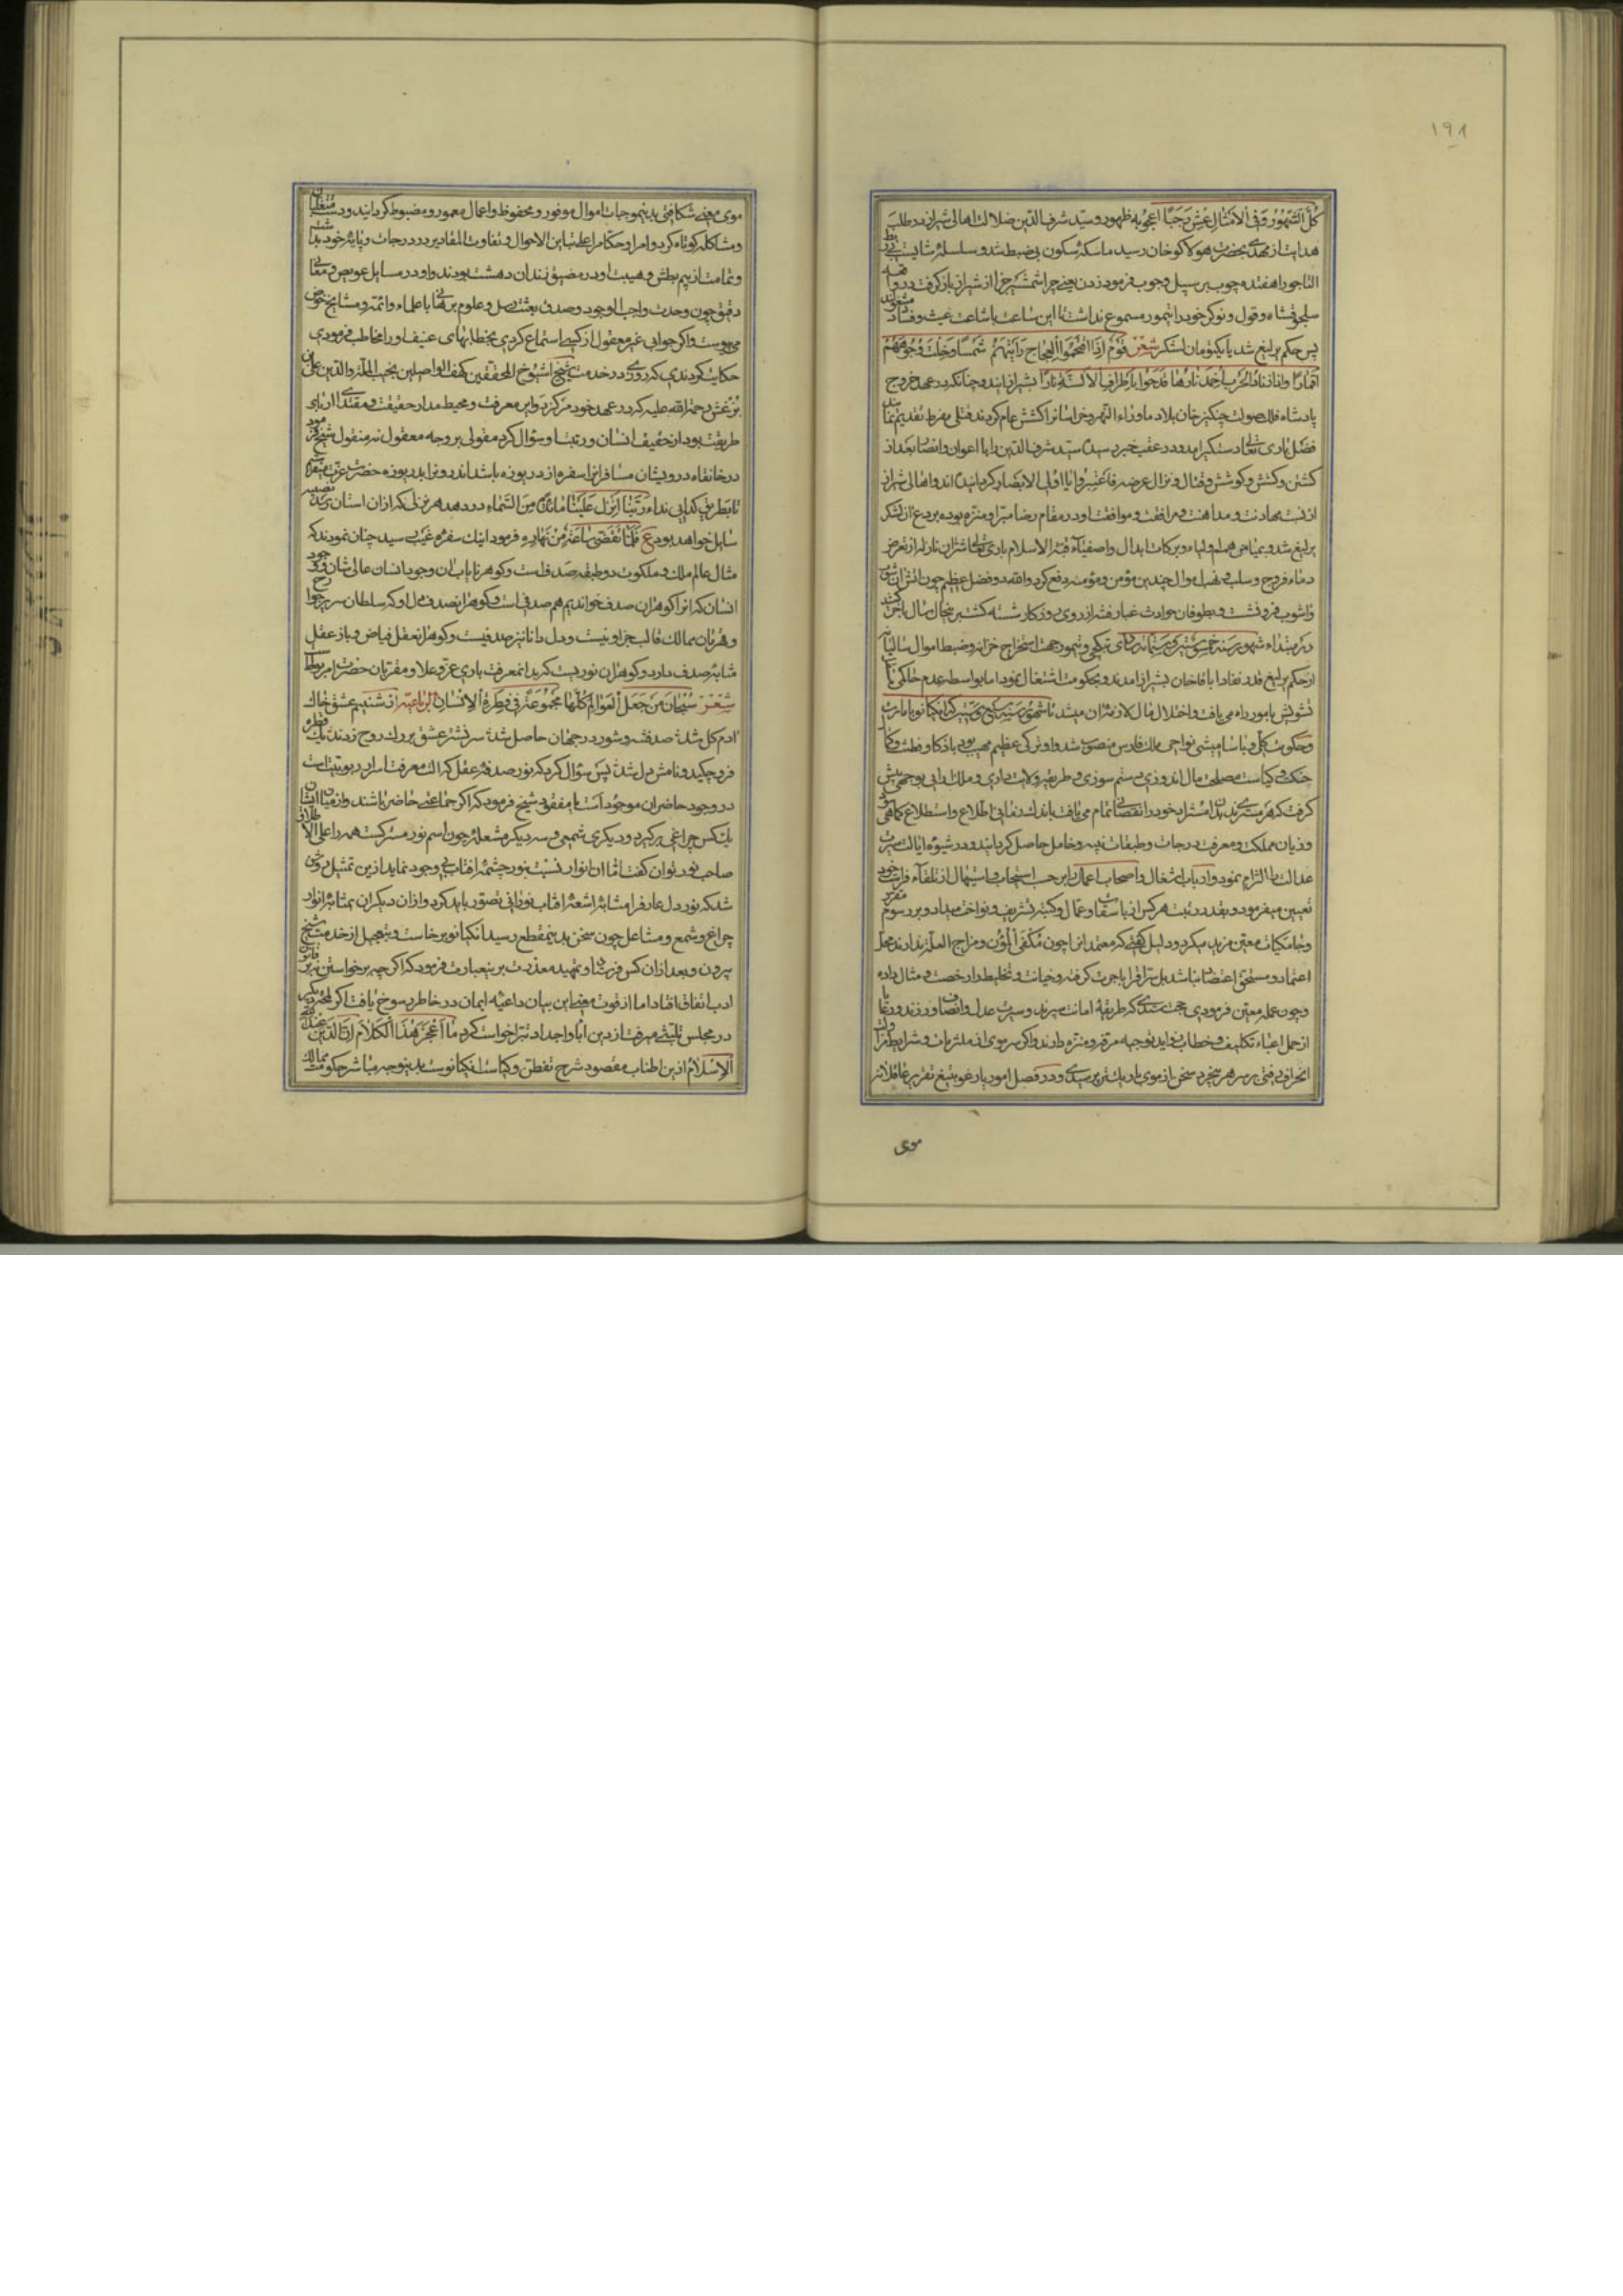 ۱۹۸
کُلُّ الشُّهُورِ وَفِی الاَمْثَالِ عِشْ رَجَبًا اعجوبه ظهور و سید شرف الدین ضلالت اهالی شیراز در طلب
هدایت از مهدی بحضرت هوکاکو خان رسید ماسکه سکون بی ضبط شد و سلسله
التاجو را هفده چوب بر سبیل وجوب فرمود زدن یعنی چرا شمشیر جزا از شیراز باز گرفت و در واقعه
سلجوقشاه و قول و نوکر خود را تیمور مسموع نداشت تا این ساعت باشاعت عیث و فساد مشغولند
پس حکم یرلیغ شد یا یکتومان لشکر شعر قَوْمٌ اِذَا اقْتَحَمُوا العِجَاجَ رَاَیْتَهُمْ شَمْسًا وَخِلْتَ وُجُوهَهُمْ
اَقْمَارًا نارها قدحوا باطراف الاسنة نارا بشیراز آیند و چنانکه در عهد خروج
پادشاه فلک صولت چنکیز خان بلاد ماوراء النهر و خراسانرا کشش عام کردند قتلی مفرط تقدیم نمایند
فضل باری تعالی دستگیر آمد و در عقب خبر رسید که سید شرف الدین را با اعوان و انصار بعد از
کشتن و کشش و کوشش و قتال و نزال عرضه فَاعْتَبِرُوا یَا اُولِی الاَبْصَار کردانیده اند و اهالی شیراز
از نسبت مهادنت و مداهنت و مرافقت و موافقت او در مقام رضا مبرا و منزه بوده بر دع از لشکر
یرلیغ شد و بمیامن همم اولیاء و برکات ابدال و اصفیاء قبة الاسلام باری تعالی شر آن نازله از تعرض
دماء و فروج و سلب و نهب اموال چندین مؤمن و مؤمنه دفع کرد والله ذو فضل عظیم چون آتش آن شور
و آشوب فرو نشست و بطوفان حوادث غبار فتنه از روی روزکار شسته کشت
در مبتداء شهور سنه خمس و ستین و ستمائه تیکچی و تیمور جهت استخراج خزانه و ضبط اموال سالیانه
از حکم یرلیغ قدر نفاد اباقا خان بشیراز آمدند و بحکومت اشتغال نمود اما بواسطه عدم حاکمی
تشویش بامور راه می یافت و اختلال مال لازم آن میشد تا شهور سنه سبع و ستین که انکیانو بامارت
و حکومت کل و باسامیشی نواحی ملک فارس منصوب شد و او ترکی عظیم مهیب بود با ذکا و فطنت و کمال
حنکت و کیاست مصلحت مال اندوزی و ستم سوزی و طریقه ولایت داری و ملک آرایی بوجهی پیش
گرفت
و زیان مملکت و معرفت درجات و طبقات نبیه و خامل حاصل کردانید و در شیوه ایالت سیرت
عدالت را التزام نمود و ارباب اشغال و اصحاب اعمال را بر حسب استحباب و استیهال از تلقاء فراست خود
تعیین میفرمود و بقدر رتبت هر کس از باسقاق و عمال و کتبه تشریف و نواخت میداد و بر رسوم مقرر
و جامکیات معین مزید میکرد و دلیل گفتی که معتمد انرا چون مکفی المؤن و مزاح العلة ندارند محل
اعتماد و مستحق اعتضاد نباشد بل سرافرا با جرت کرفته و خیانت و تخلیط را رخصت و مثال داده
و چون عمله معین فرمودی حجت ستدی که طریقه امانت سپرند و سیرت عدل و انصاف ورزند و رعایا
از حمل اعباء تکالیف و خطاب زواید توجیه مرفه و منزه دارند و اکر سر موی از ملتزمات و شرایط
انحراف رفتی بر سر هر سخرد سخن باز موی باریکتر پرسیدی و در فصل امور یارغو بتیغ تقریر عاقلانه
موی
موی معنی شکافتی بدینموجبات اموال موفور و محفوظ و اعمال معمور و مضبوط کردانید و دست متغلبان
و مشاکله کوتاه کرد و امرا و حکام را علی تباین الاحوال و تفاوت المقادیر در درجات و پایه خود بداشت
و تمامت از بیم بطش و هیبت او در مضیق زندان دهشت بودند و او در مسایل عویص و معانی
دقیق چون وحدت واجب الوجود و صدق بعثت رسل و علوم برهانی با علماء و ائمه و مشایخ خوض
می پیوست و اکر جوابی غیر معقول از کسی استماع کردی بخطابهای عنیف او را مخاطب فرمودی
حکایت کردندی که روزی در خدمت شیخ الشیوخ المحققین کهف الواصلین نجیب الملة والدین علی بن
بزغش رحمة الله علیه که در عهد خود مرکز دوایر معرفت و محیط مدار حقیقت و مقتدای ارباب
طریقت بود از حقیقت انسان و رتبت او سؤال کرد مقولی بر وجه معقول نه منقول شیخ فرمود
در خانقاه درویشان مسافرانرا سفره از دریوزه باشد اندرون را بدریوزه حضرت عزت میفرستم
تا بطریق کدایی نداء رَبَّنَا اَنْزِلْ عَلَیْنَا مَائِدَةً مِنَ السَّمَاءِ در دهد هر نزلی که از آن آستان نصیبه
سایل خواهد بود ع فَلَمَّا تَقَضَّى سَاعَةٌ مِنْ نَهَارِهِ فرمود اینک سفره غیب رسید چنان نمودند که
مثال عالم ملک و ملکوت دو طبقه صدفست و کوهر نایاب آن وجود انسان عالی شان و وجود
انسان که آنرا کوهر آن صدف خواندیم هم صدفی است و کوهر آن صدف دل او که سلطان سریر جوارح
و قهرمان ممالک قالب جز او نیست و دل دانا نیز صدفیست و کوهر آن عقل فیاض و باز عقل
مثابه صدف دارد و کوهر آن نوریست که بدان معرفت باری عز و علا و مقربان حضرت او مربوط است
شعر سُبْحَانَ مَنْ جَعَلَ الْعَوَالِمَ كُلَّهَا مَجْمُوعَةً فِی فِطْرَةِ الْاِنْسَانِ الرباعیه از شبنم عشق خاک
آدم کل شد صد فتنه و شور در جهان حاصل شد سر نشتر عشق بر رک روح زدند یک قطره
فرو چکید و نامش دل شد پس سؤال کرد که نور صدقه عقل که آلت معرفت اسرار ربوبیت است
در وجود حاضران موجود است یا مفقود شیخ فرمود که اکر جماعتی حاضر باشند و از میان ایشان
یک کس چراغی برکیرد و دیکری شمعی و سه دیکر مشعله چون اسم نور مشترکست همه را علی الاطلاق
صاحب نور توان گفت اما آن انوار نسبت بنور چشمه آفتاب بی وجود نماید ازین تمثیل روشن
شد که نور دل عارفرا مشابه اشعه آفتاب نورانی تصور باید کرد و از آن دیکران بمثابه انوار
چراغ و شمع و مشاعل چون سخن بدینمقطع رسید انکیانو برخاست و بتعجیل از خدمت شیخ
بیرون و بعد از آن کس فرستاد و تمهید معذرت برینعبارت فرمود که اکر چه برخواستن نه بر قانون
ادب اتفاق افتاد اما از قوت فیض این بیان داعیه ایمان در خاطر رسوخ یافت اکر لحظه دیکر
در مجلس تلبثی میرفت از دین آبا و اجداد تبرا خواست کرد مَا اَعْجَزَ هَذَا الْکَلَامَ اِنَّ الدِّینَ عِنْدَ اللّٰهِ
الاِسْلَامُ ازین اطناب مقصود شرح تفطن و کیاست انکیانوست بدینوجه مباشر حکومت ممالک